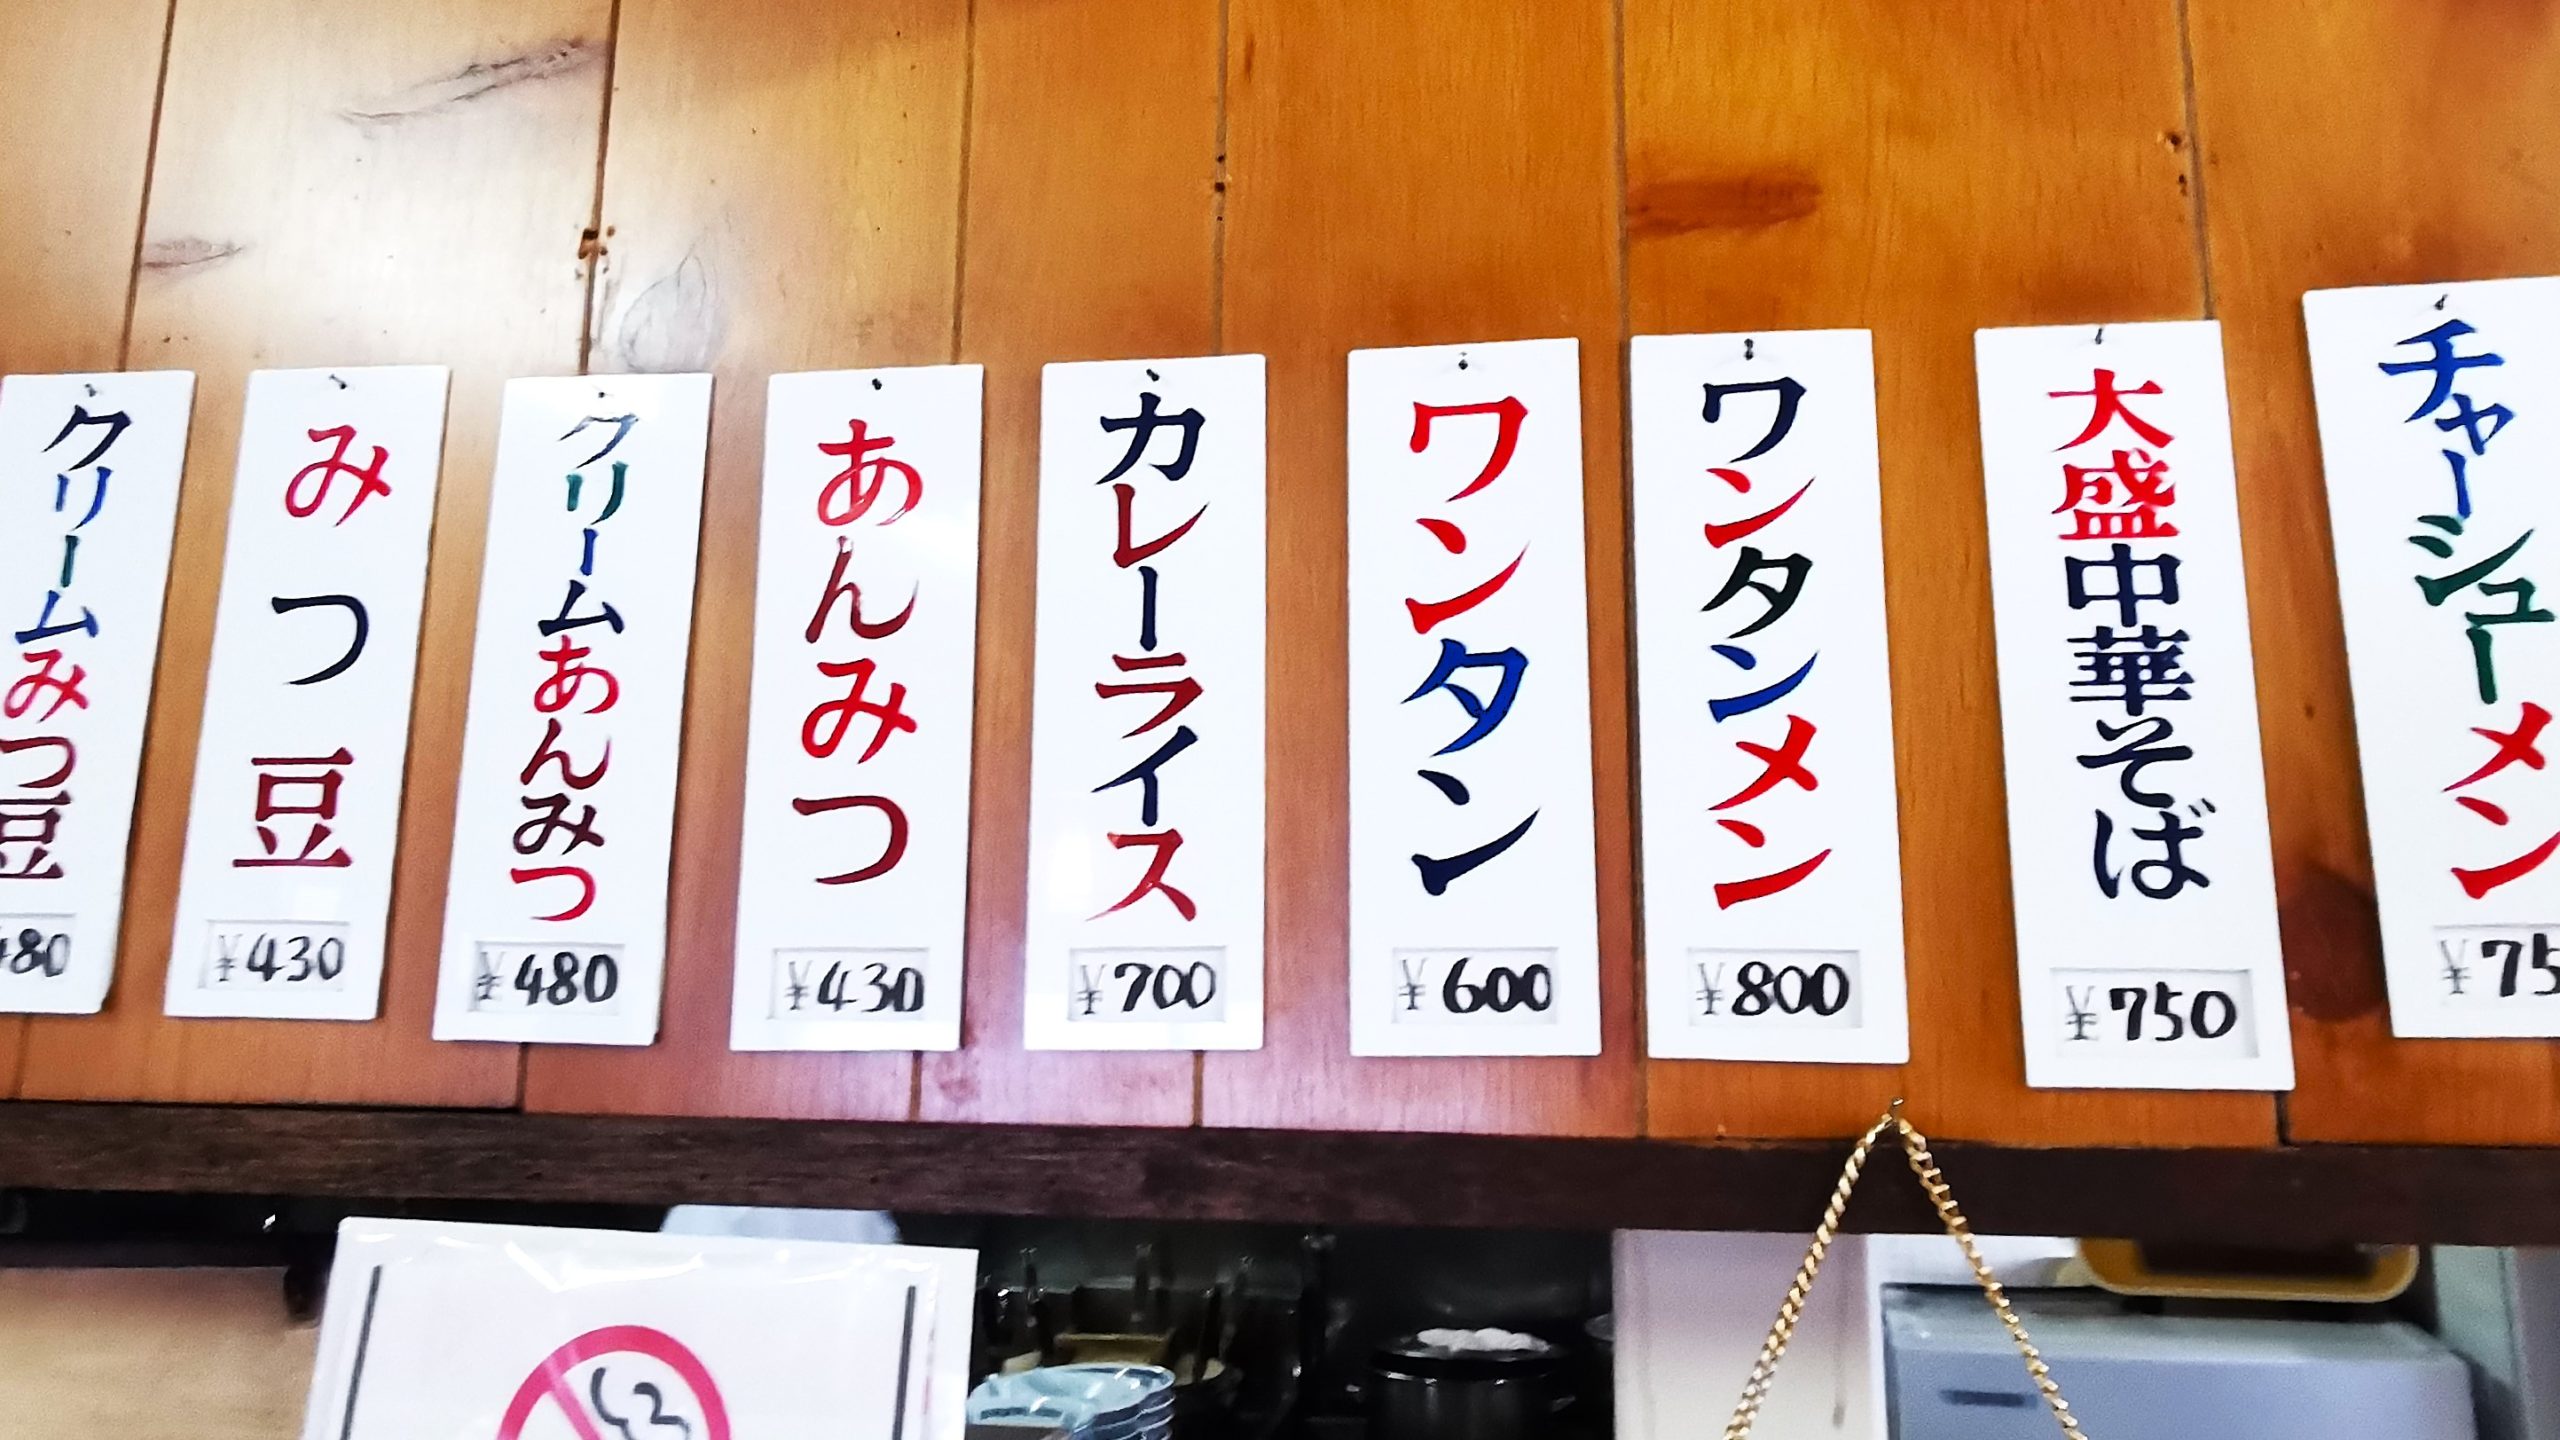 チャーシューメン
¥75
大盛中華そば
¥750
ワンタンメン
¥800
ワンタン
¥600
カレーライス
¥700
あんみつ
¥430
クリームあんみつ
¥480
みつ豆
¥430
クリームみつ豆
480